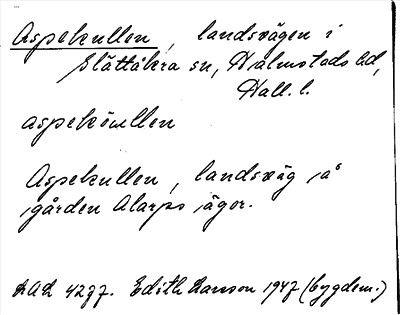 Aspekullen, landsvägen i
Slättåkra sn, Halmstads hd,
Hall. l.
aspeköullen
Aspekullen, landsväg på
gården Alarps ägor.
LAL 4297. Edith Larsson 1947 (bygdem.)